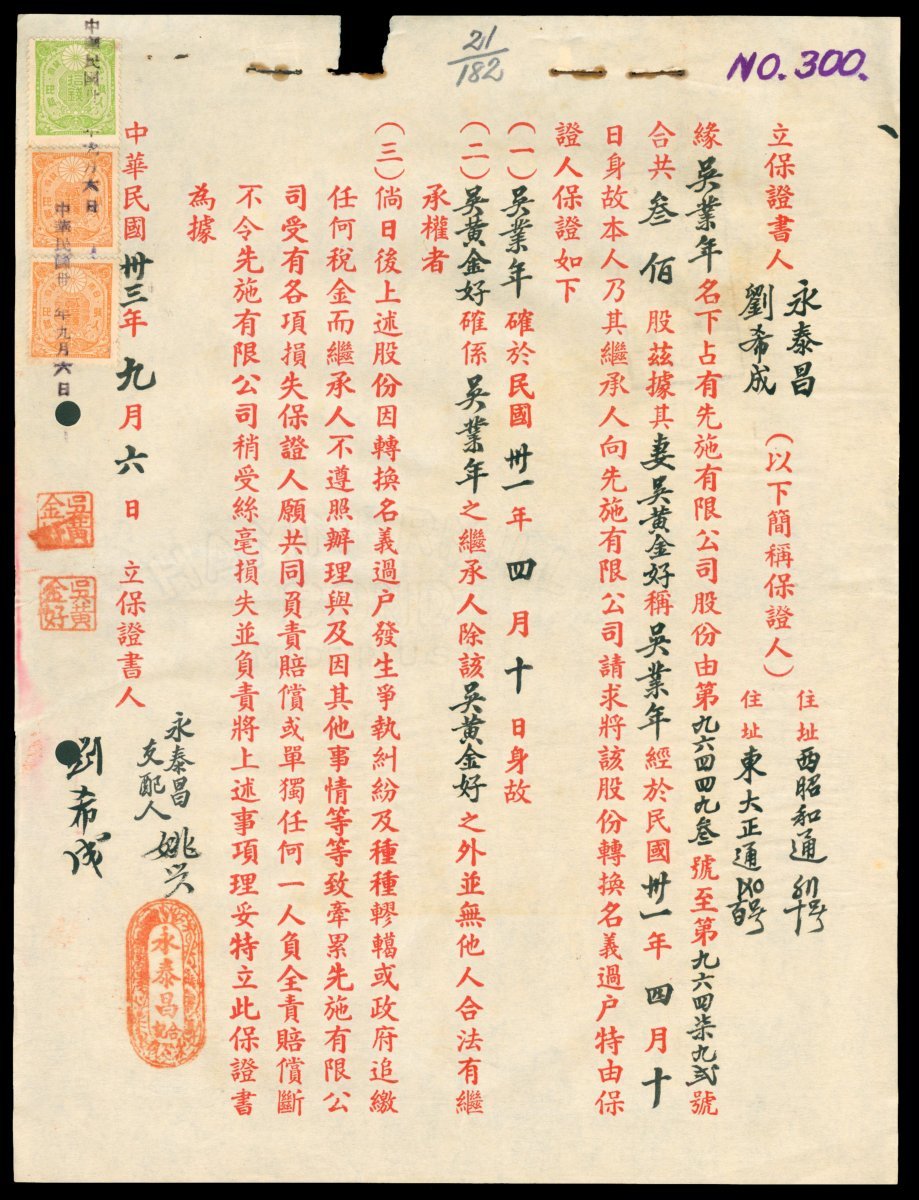 NO. 300.
21/182
立保證書人 永泰昌 劉希成 (以下簡稱保證人) 住址 西昭和通 住址 東大正通
緣吳業年名下占有先施有限公司股份由第九六四四九叁號至第九六四柒九弍號
合共叁佰股茲據其妻吳黃金好稱吳業年經於民國卅一年四月十
日身故本人乃其繼承人向先施有限公司請求將該股份轉換名義過户特由保
證人保證如下
(一)吳業年確於民國卅一年四月十日身故
(二)吳黃金好確係吳業年之繼承人除該吳黃金好之外並無他人合法有繼
承權者
(三)倘日後上述股份因轉換名義過户發生爭執糾紛及種種轇轕或政府追繳
任何稅金而繼承人不遵照辦理與及因其他事情等等致牽累先施有限公
司受有各項損失保證人願共同負責賠償或單獨任何一人負全責賠償斷
不令先施有限公司稍受絲毫損失並負責將上述事項理妥特立此保證書
為據
中華民國卅三年九月六日 立保證書人
永泰昌
支配人 姚
劉希成
永泰昌
吳黃金好
吳黃金好
中華民國卅 年九月六日
中華民國卅 年九月六日